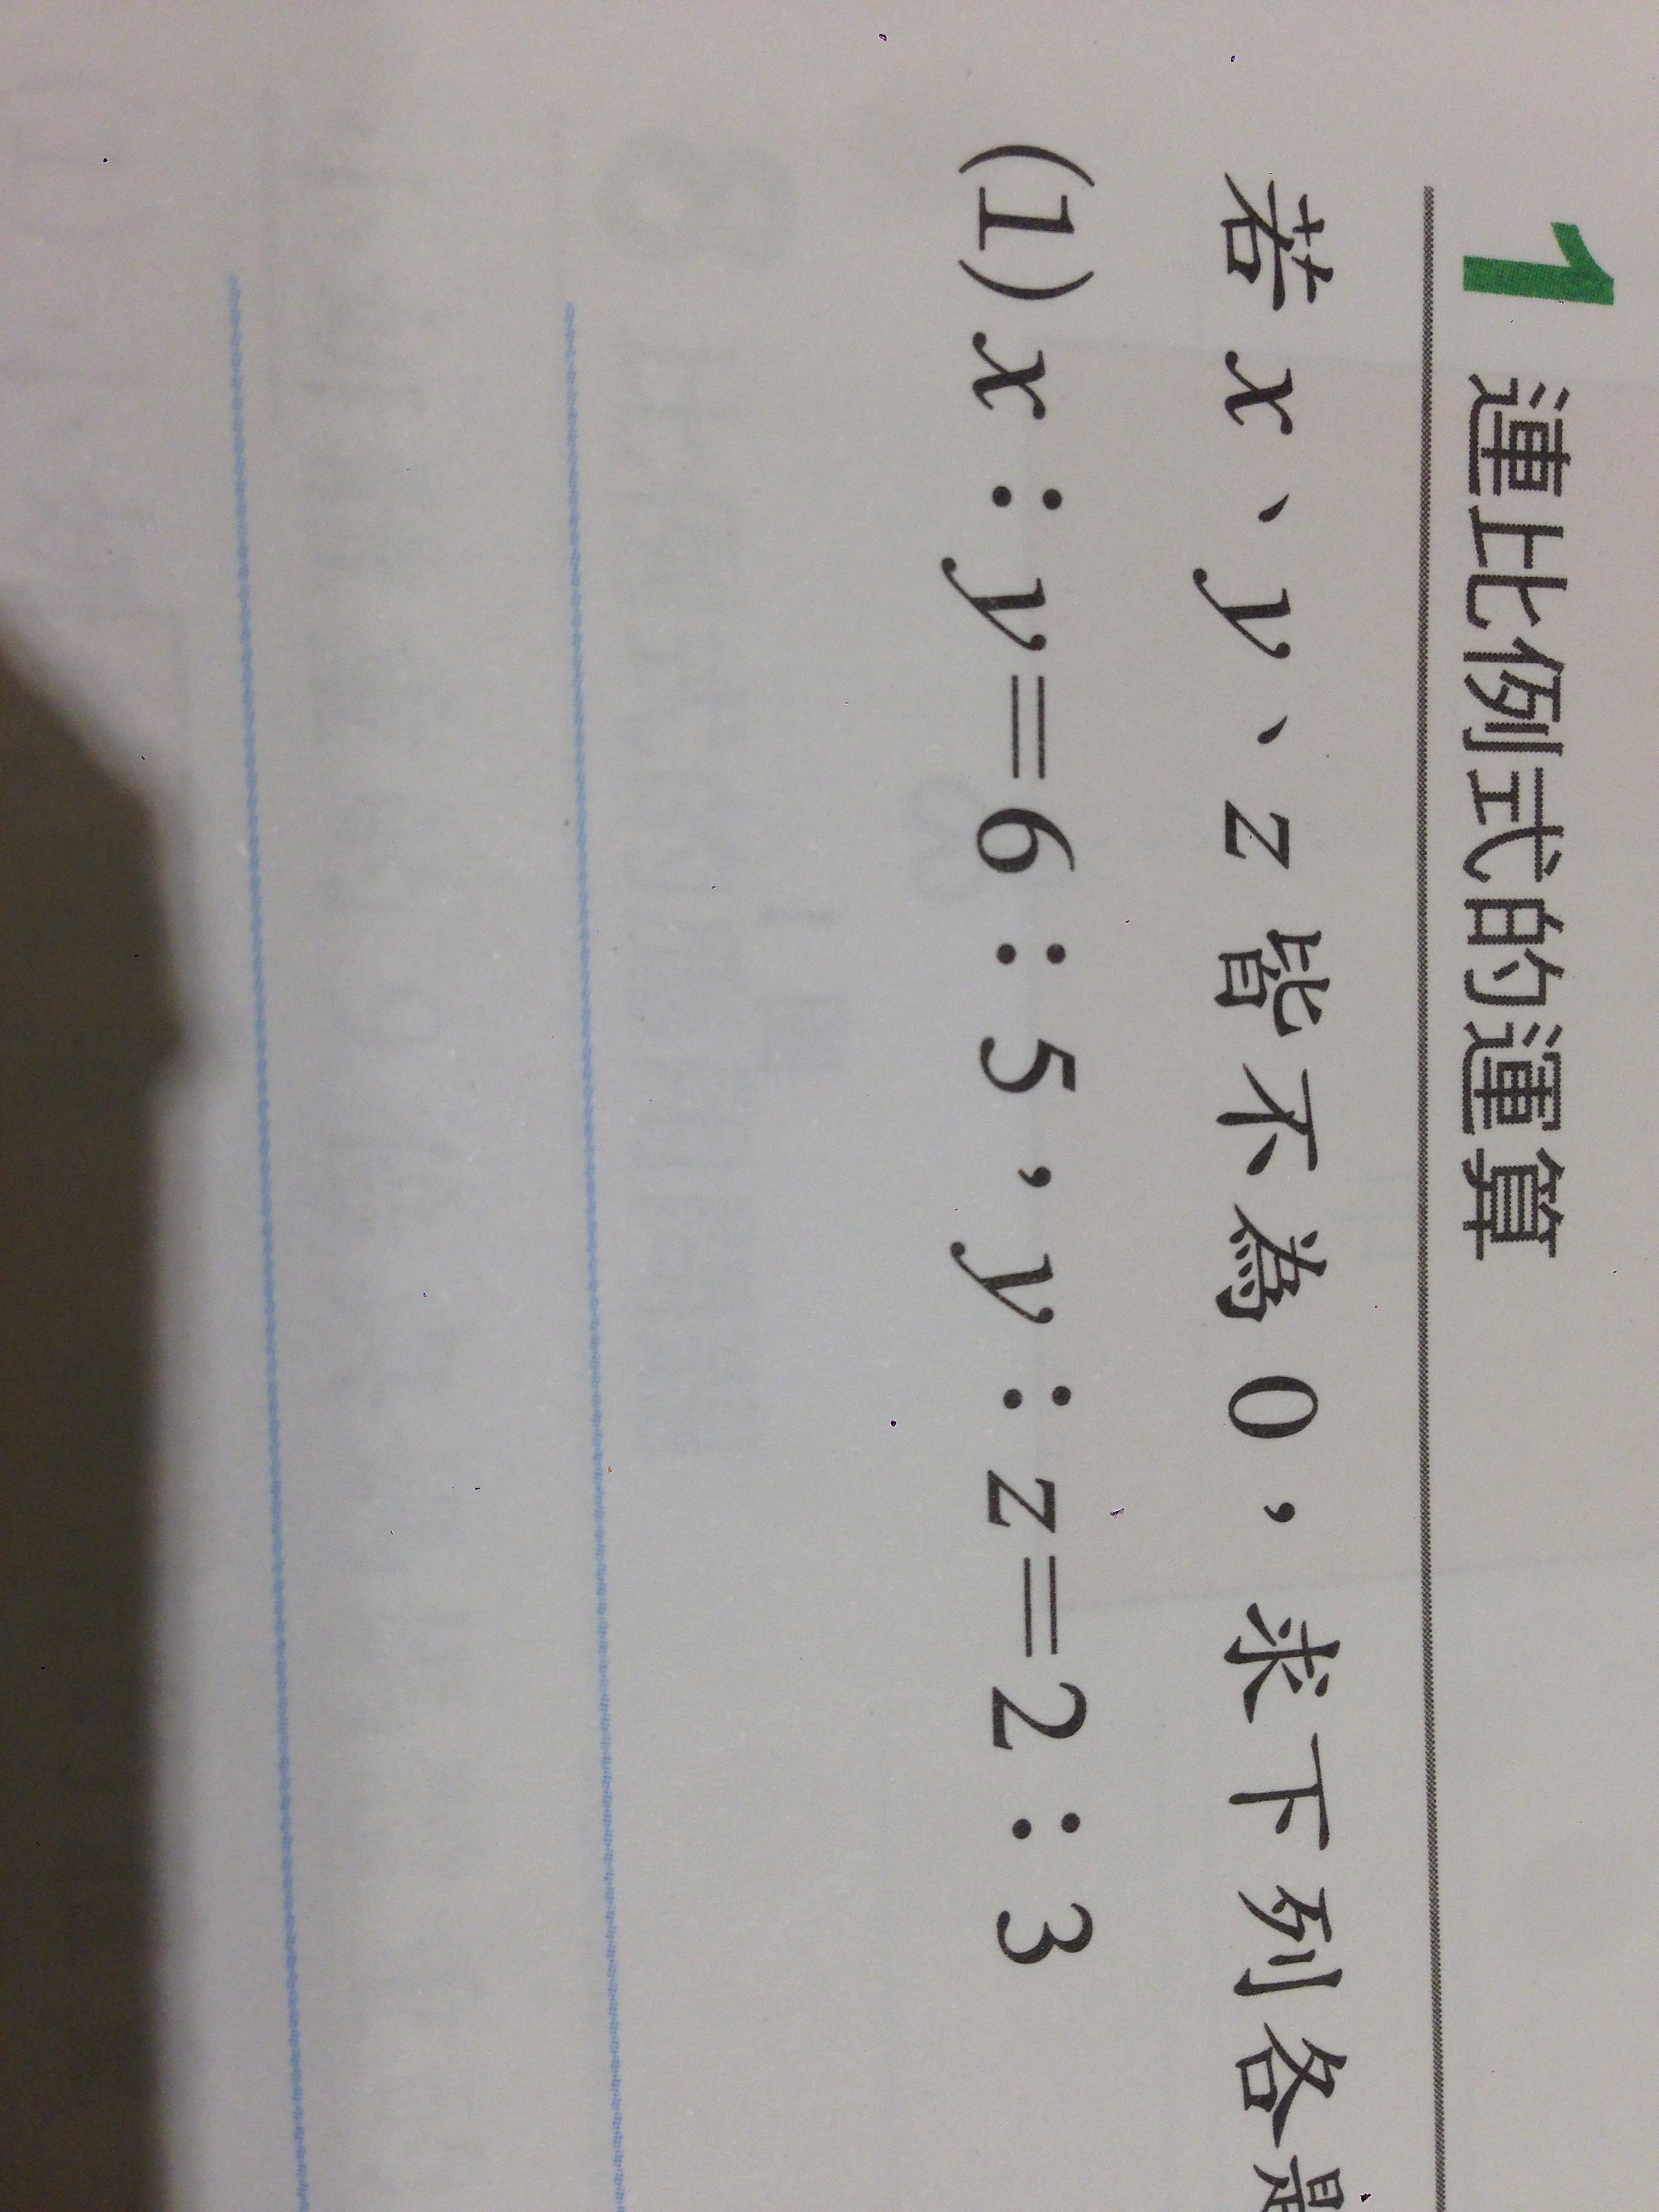 1 連比例式的運算
若 x、y、z 皆不為 0，求下列各
(1) x：y＝6：5，y：z＝2：3